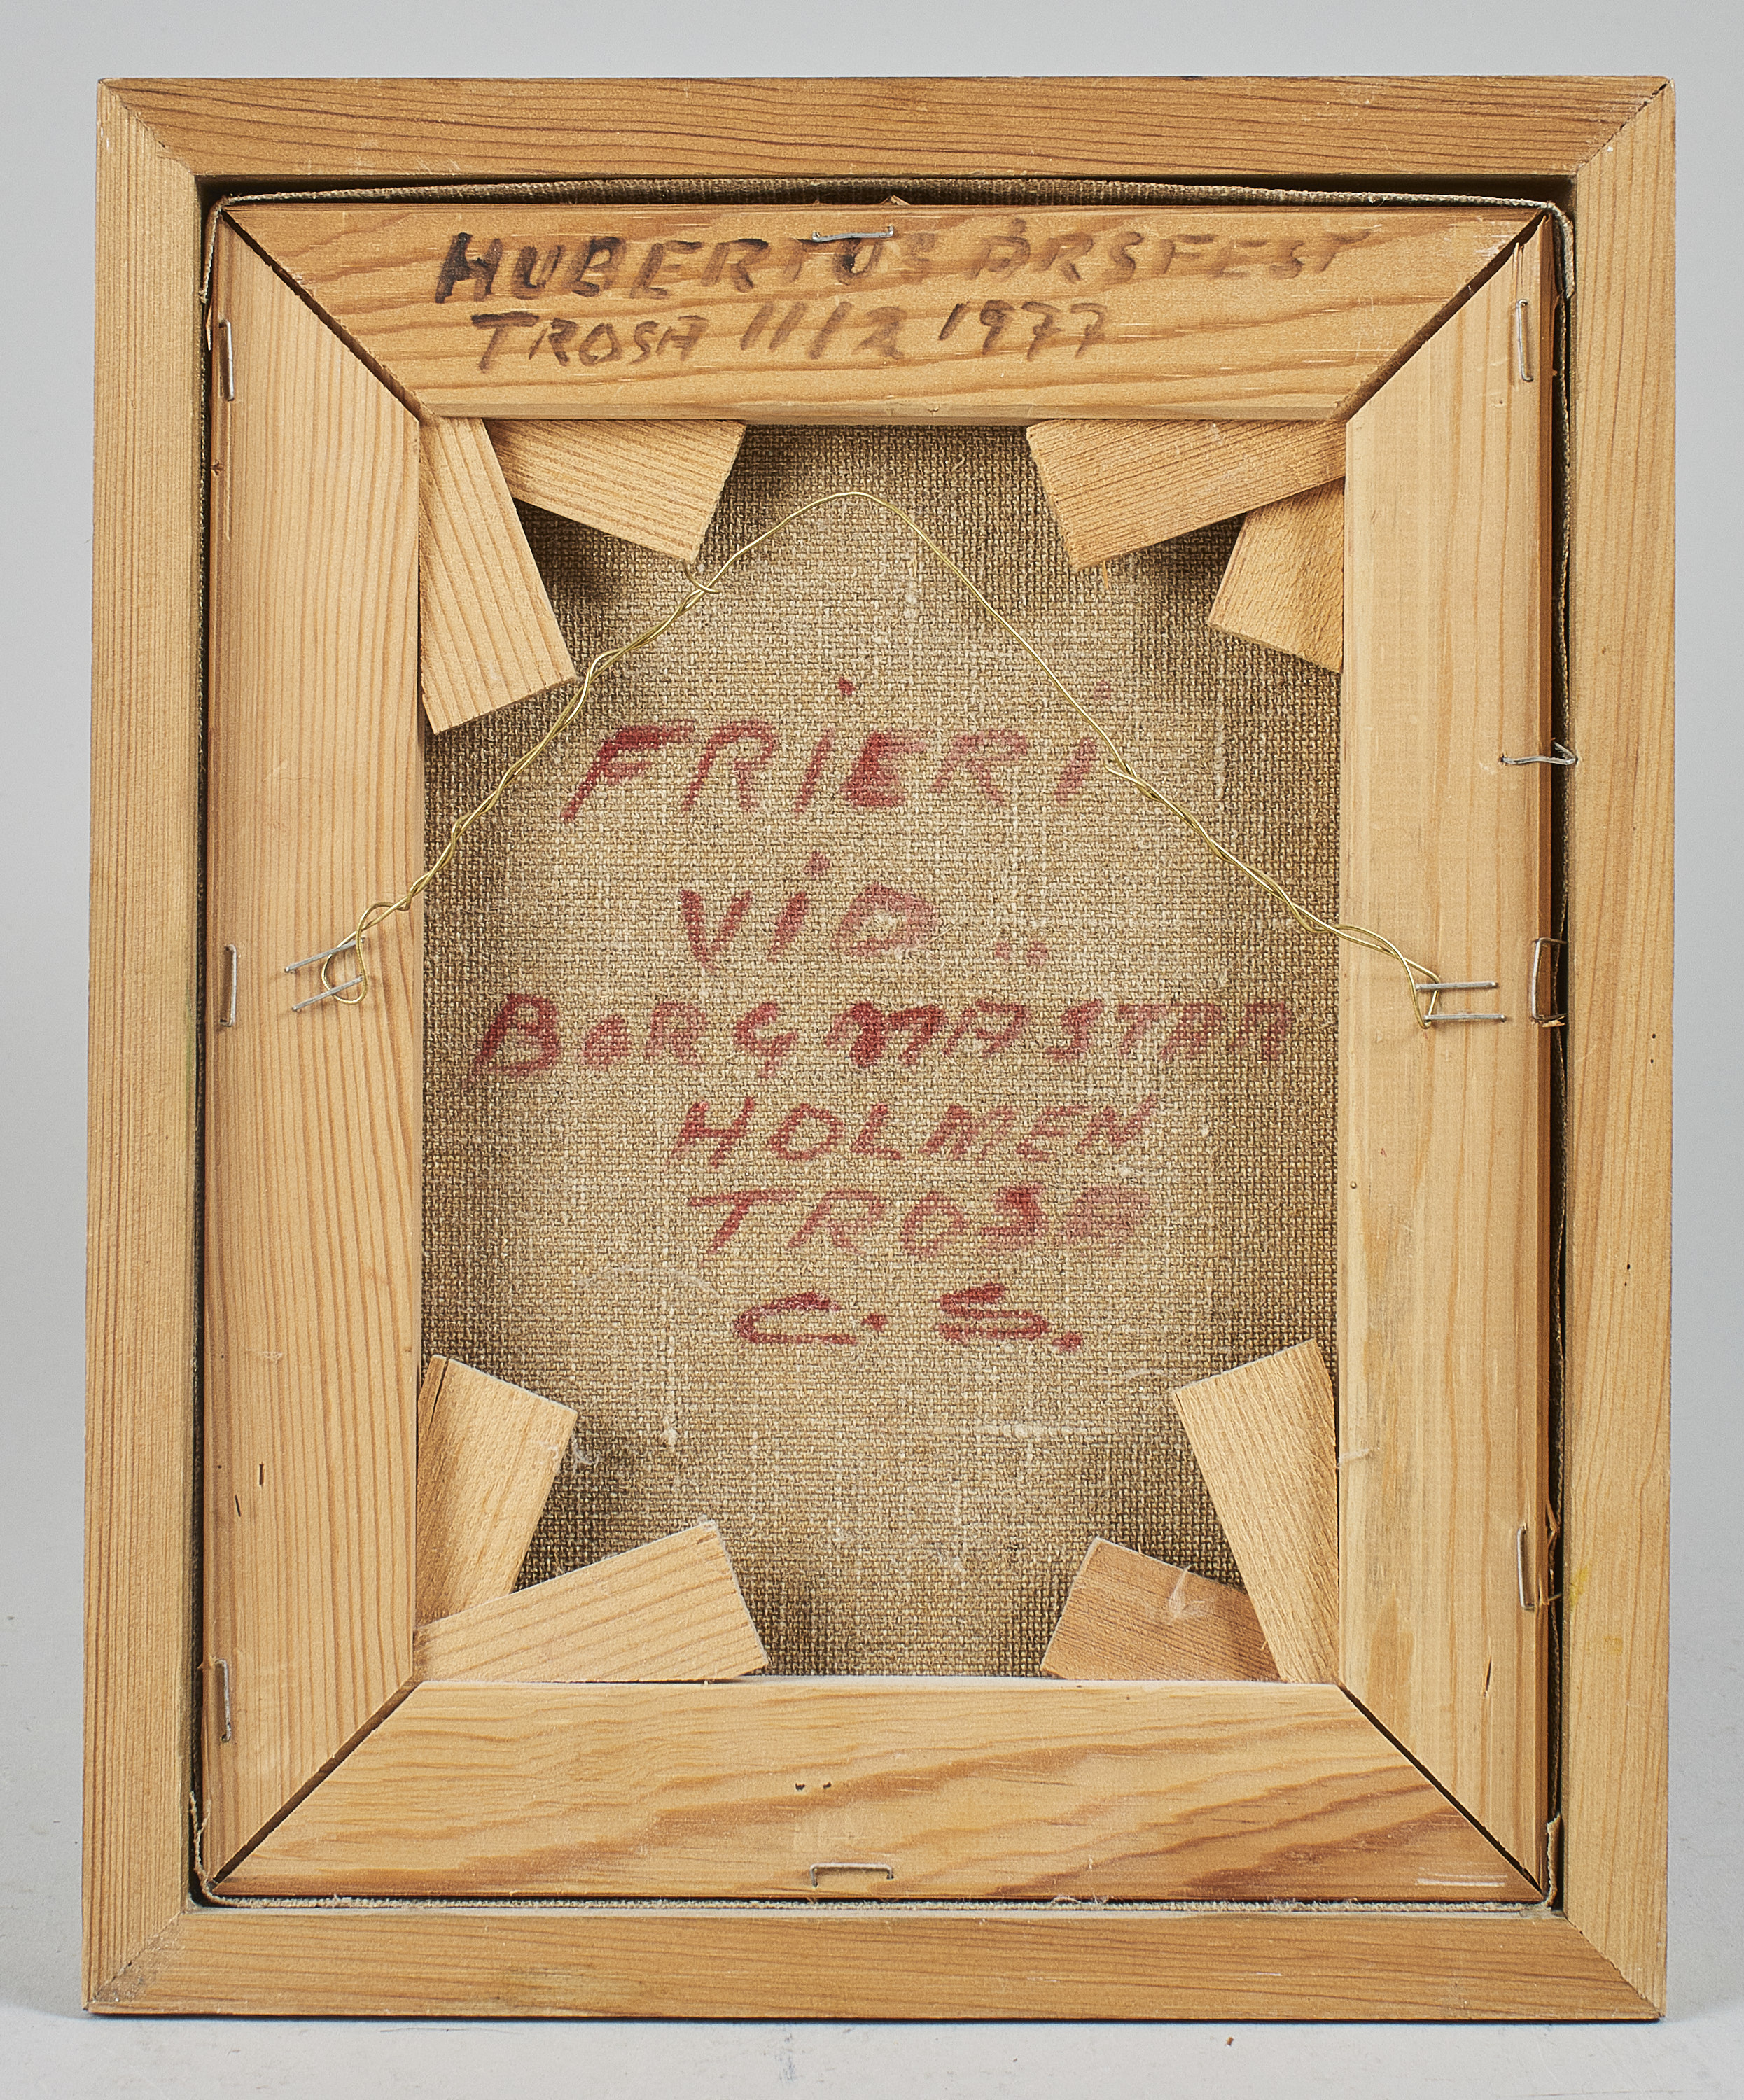 HUBERTUS ÅRSFEST
TROSA 11/2 1977
FRiERi
ViD
BORGMÄSTAR
HOLMEN
TROSA
C. S.